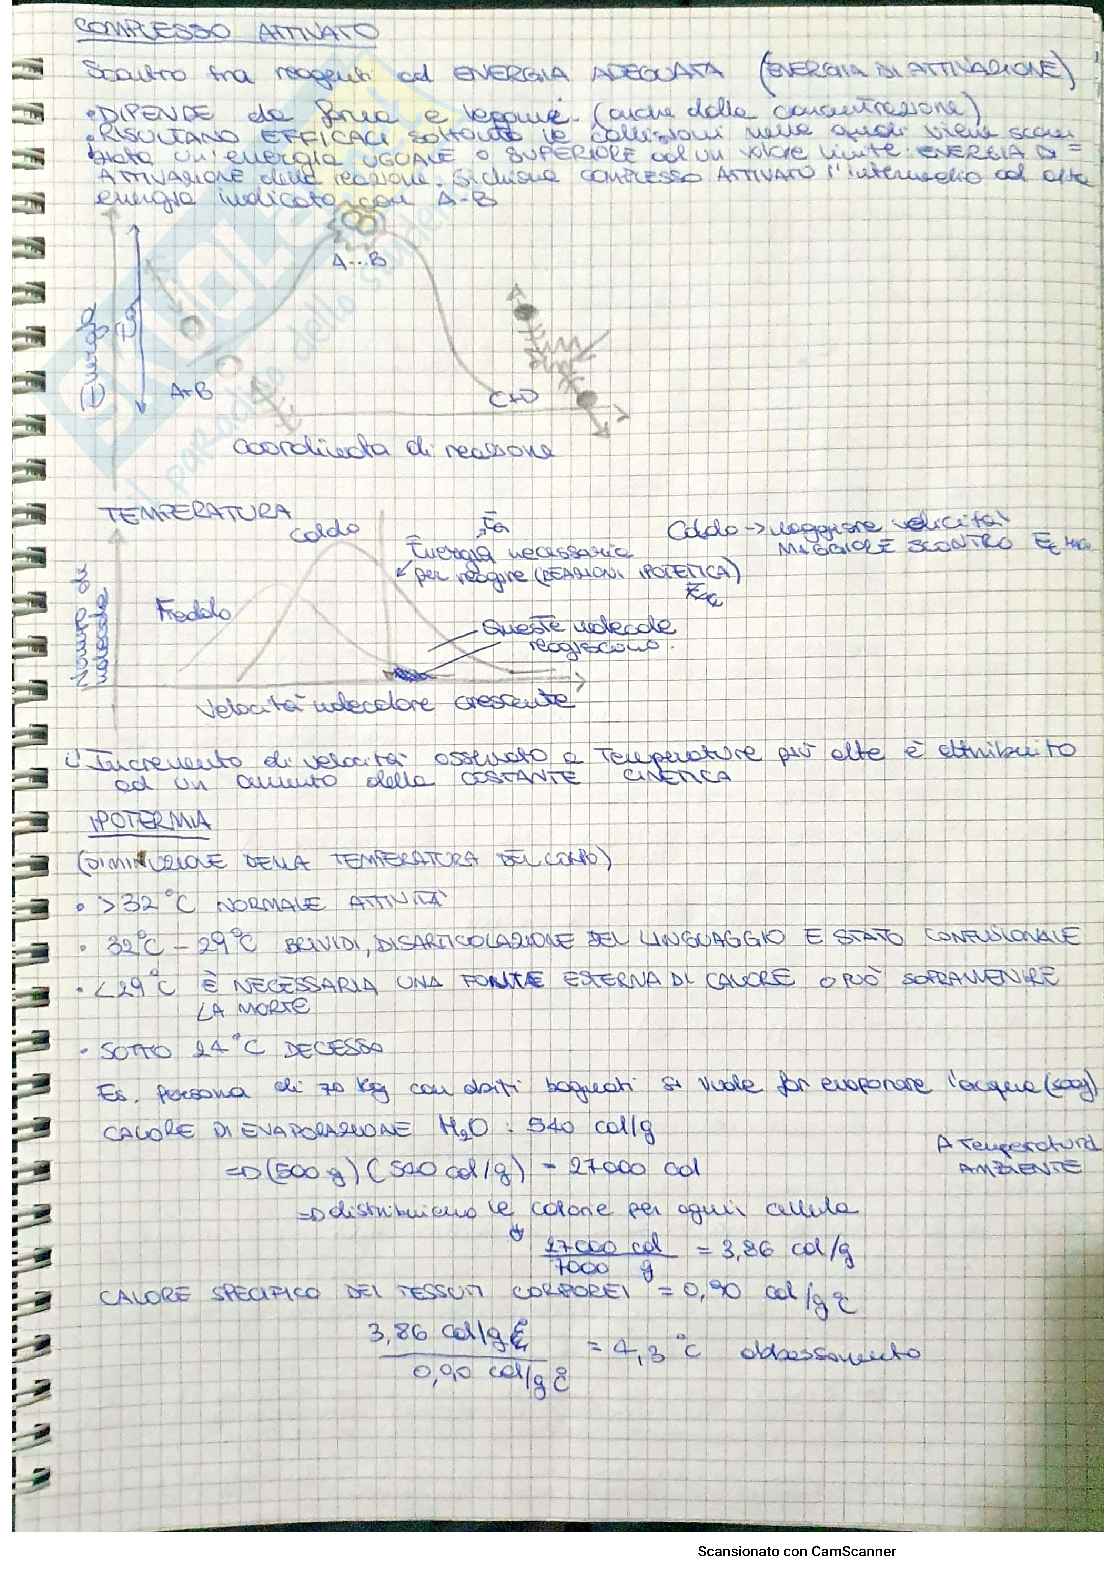 COMPLESSO ATTIVATO
Scontro fra reagenti ad ENERGIA ADEGUATA (ENERGIA DI ATTIVAZIONE)
• DIPENDE da forma e legami. (anche dalla concentrazione)
• RISULTANO EFFICACI SOLTANTO le collisioni nelle quali viene scam
biata un'energia UGUALE o SUPERIORE ad un valore limite: ENERGIA DI =
ATTIVAZIONE della reazione. Si chiama COMPLESSO ATTIVATO l'intermedio ad alta
energia indicato con A-B
A...B
Energia
Ea
A+B
C+D
coordinata di reazione
TEMPERATURA
Caldo
Ea
Energia necessaria
per reagire (REAZIONI IPOTETICA)
Ea
Caldo → Maggiore velocità
MAGGIORE SCONTRO
Freddo
Numero di
molecole
Queste molecole
reagiscono.
Velocità molecolare crescente
L'Incremento di velocità osservato a Temperature più alte è attribuito
ad un aumento della COSTANTE CINETICA
IPOTERMIA
(DIMINUZIONE DELLA TEMPERATURA DEL CORPO)
• >32°C NORMALE ATTIVITÀ
• 32°C - 29°C BRIVIDI, DISARTICOLAZIONE DEL LINGUAGGIO E STATO CONFUSIONALE
• <29°C È NECESSARIA UNA FONTE ESTERNA DI CALORE O PUÒ SOPRAVVENIRE
LA MORTE
• SOTTO 24°C DECESSO
Es. persona di 70 Kg con abiti bagnati si vuole far evaporare l'acqua (500g)
CALORE DI EVAPORAZIONE H2O: 540 cal/g
A Temperatura
AMBIENTE
=D (500 g) (540 cal/g) = 27000 cal
=D distribuiamo le calorie per ogni cellula
27000 cal / 7000 g = 3,86 cal/g
CALORE SPECIFICO DEI TESSUTI CORPOREI = 0,90 cal/g °C
3,86 cal/g / 0,90 cal/g °C = 4,3 °C abbassamento
Scansionato con CamScanner